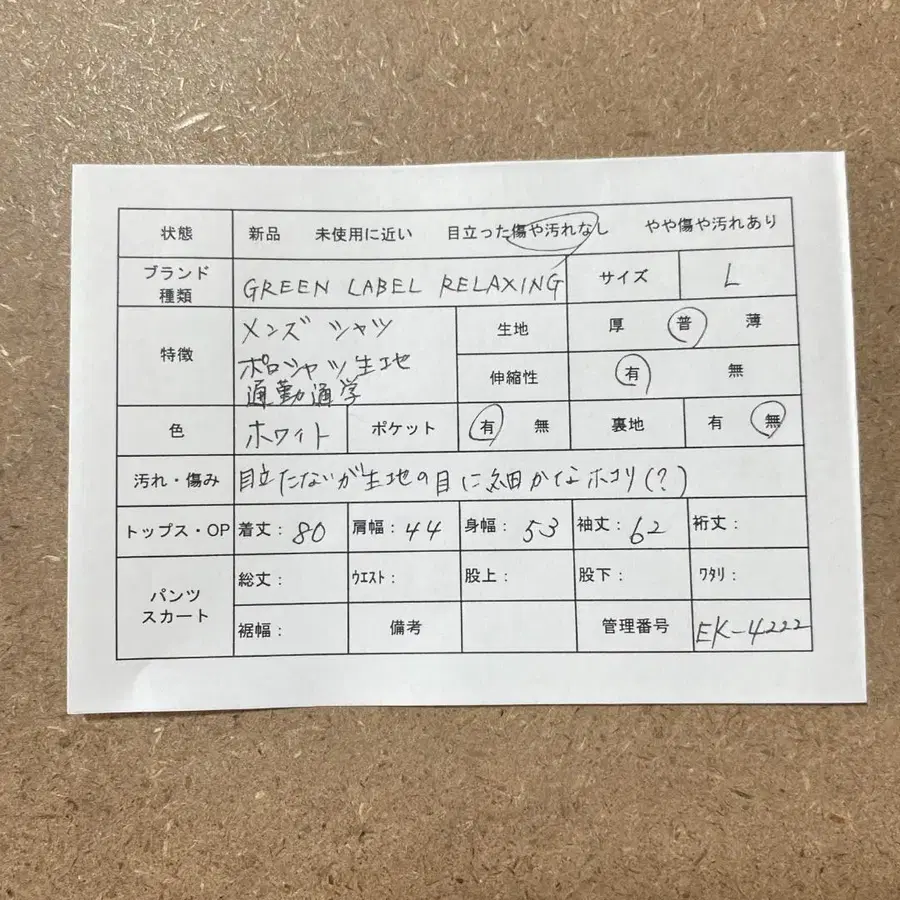 状態 新品 未使用に近い 目立った傷や汚れなし やや傷や汚れあり
ブランド種類 GREEN LABEL RELAXING サイズ L
特徴 メンズ シャツ 生地 厚 普 薄
ポロシャツ生地 伸縮性 有 無
通勤通学
色 ホワイト ポケット 有 無 裏地 有 無
汚れ・傷み 目立たないが生地の目に細かなホコリ(?)
トップス・OP 着丈: 80 肩幅: 44 身幅: 53 袖丈: 62 裄丈:
パンツ スカート 総丈: ウエスト: 股上: 股下: ワタリ:
裾幅: 備考 管理番号 EK-4222